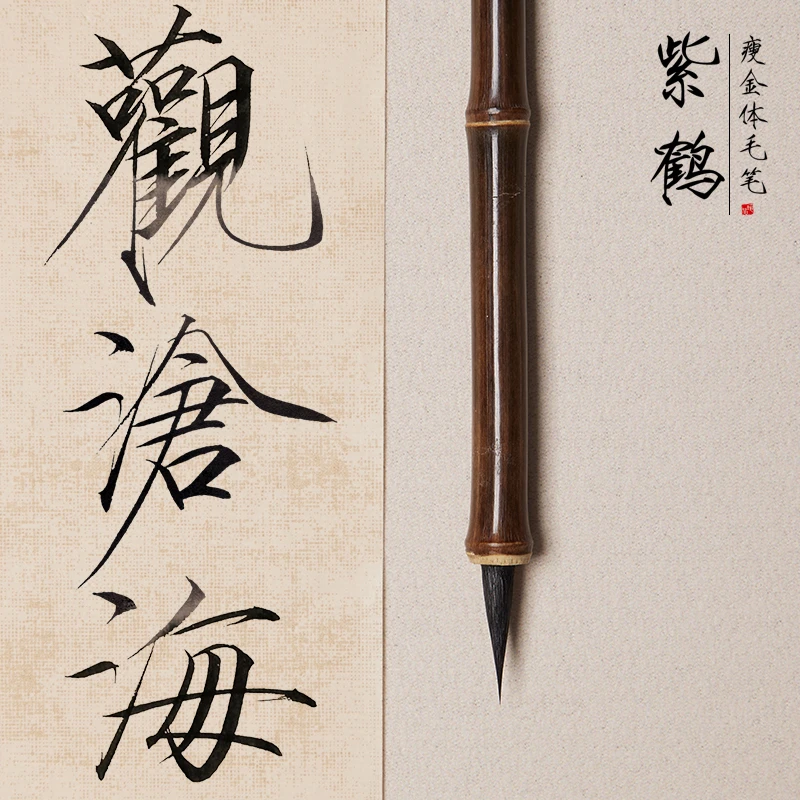 觀滄海
紫鹤
瘦金体毛笔